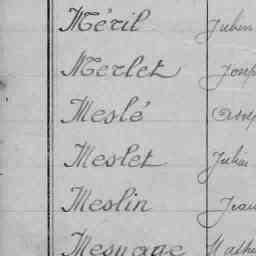 Méril Julien
Merlet Josep
Meslé
Meslet Julien
Meslin Jean
Mesnage Mathu